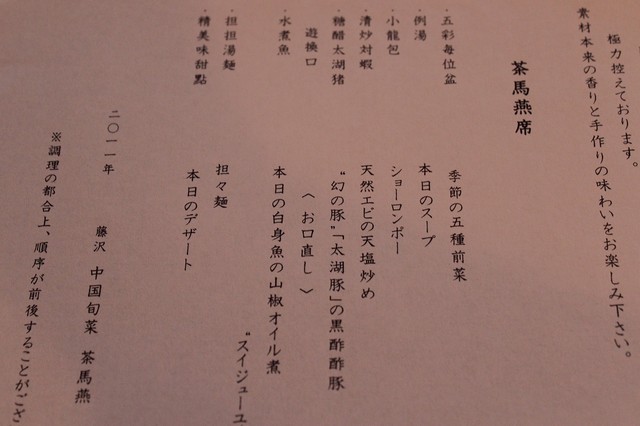 極力控えております。
素材本来の香りと手作りの味わいをお楽しみ下さい。
茶馬燕席
・五彩每位盆
季節の五種前菜
・例湯
本日のスープ
・小龍包
ショーロンポー
・清炒対蝦
天然エビの天塩炒め
・糖醋太湖猪
“幻の豚”「太湖豚」の黒酢酢豚
遊換口
〈お口直し〉
・水煮魚
本日の白身魚の山椒オイル煮
“スイジューユ
・担担湯麺
担々麺
・精美味甜點
本日のデザート
二〇一一年
藤沢 中国旬菜 茶馬燕
※調理の都合上、順序が前後することがござ